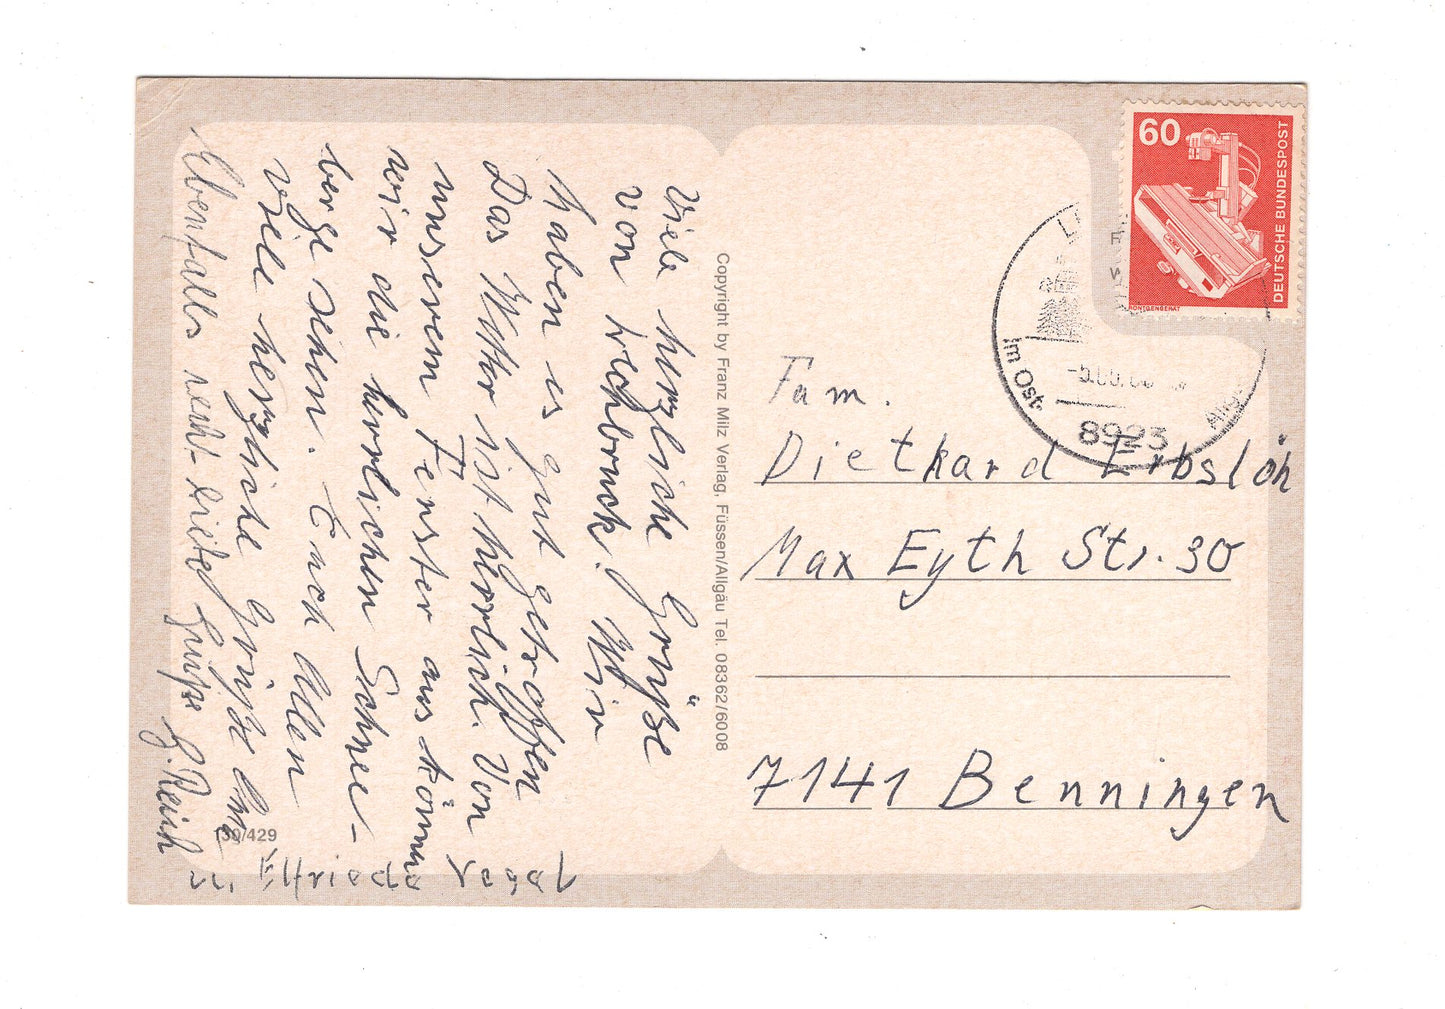 Viele herzliche Grüße
von Lechbruck. Wir
haben es gut getroffen
Das Wetter ist herrlich. Von
unserem Fenster aus können
wir die herrlichen Schnee-
berge sehen. Euch Allen
viele herzliche Grüße
Ebenfalls recht liebe Grüße G. Reich
u. Elfriede
139/429
Copyright by Franz Milz Verlag, Füssen/Allgäu Tel. 08362/6008
60
DEUTSCHE BUNDESPOST
RÖNTGENGERÄT
im Ost-
8923
Fam.
Diethard Erbslöh
Max Eyth Str. 30
7141 Benningen